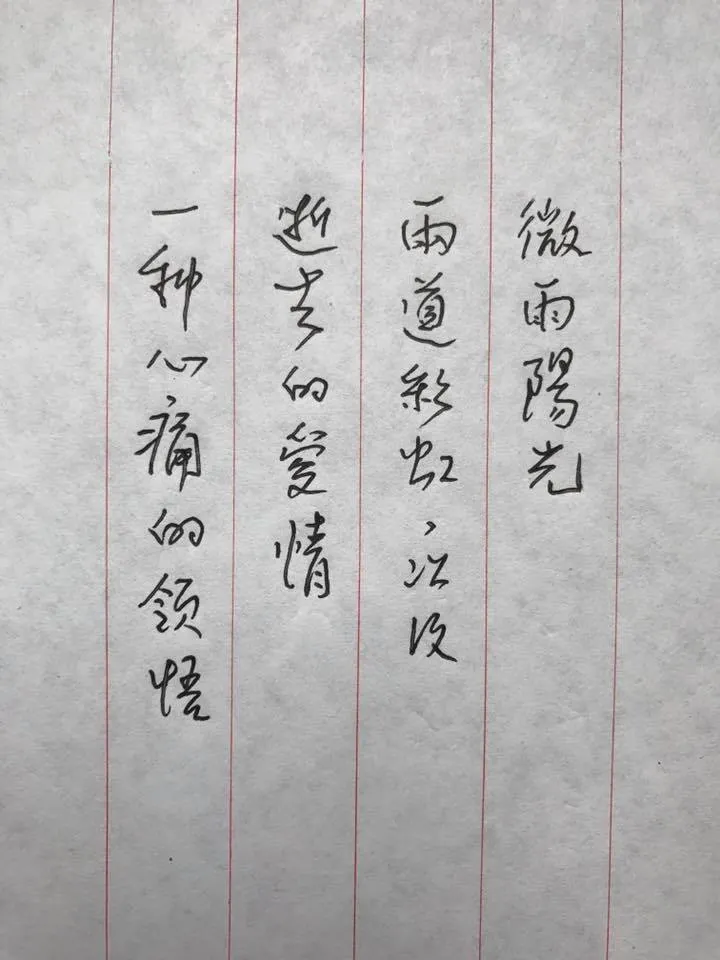 微雨陽光
兩道彩虹、
逝去的愛情
一种心痛的領悟